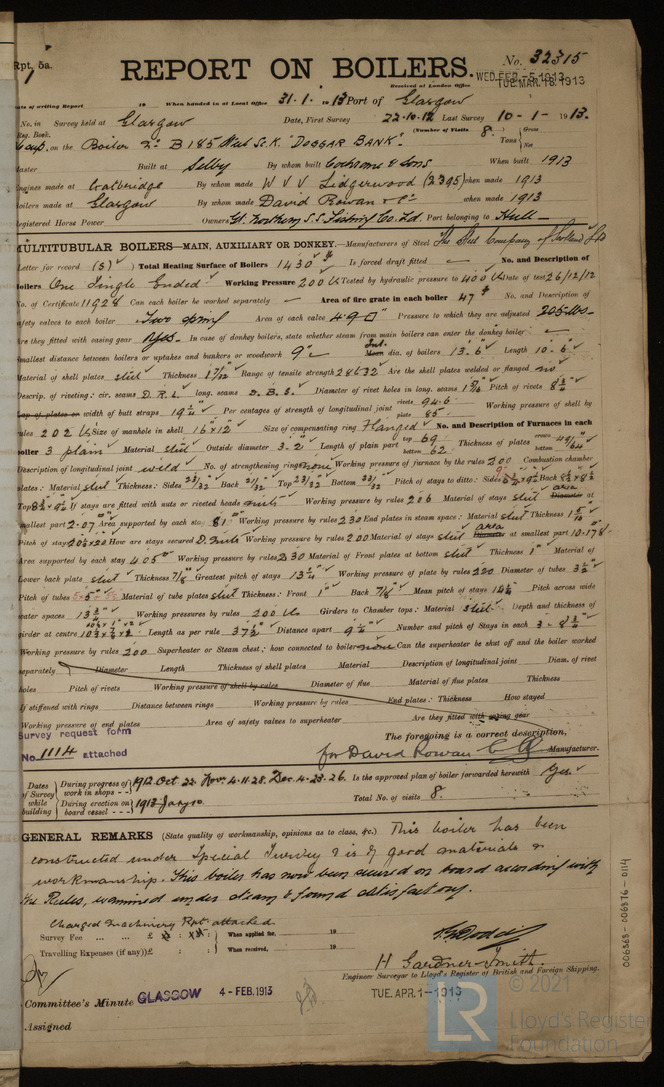 Rpt. 5a.
No. 32315
REPORT ON BOILERS.
Received at London Office WED. FEB. -5 1913
TUE. MAR. 18. 1913
Date of writing Report 19 When handed in at Local Office 31.1.1913 Port of Glasgow
No. in Survey held at Glasgow Date, First Survey 22.10.12 Last Survey 10-1-1913.
Reg. Book. (Number of Visits 8.) Gross
on the Boiler No B185 Steel Sc. K. "DOGGAR BANK" Tons Net
Master Built at Selby By whom built Cochrane & Sons When built 1913
Engines made at Coatbridge By whom made W V V Lidgerwood (2395) when made 1913
Boilers made at Glasgow By whom made David Rowan & Co when made 1913
Registered Horse Power Owners Gt. Northern S.S. Fishing Co. Ltd. Port belonging to Hull
MULTITUBULAR BOILERS—MAIN, AUXILIARY OR DONKEY.—Manufacturers of Steel The Steel Company of Scotland Ltd
Letter for record (S) Total Heating Surface of Boilers 1430 Is forced draft fitted — No. and Description of
Boilers One Single Ended Working Pressure 200 lbs Tested by hydraulic pressure to 400 lbs Date of test 26/12/12
No. of Certificate 11928 Can each boiler be worked separately — Area of fire grate in each boiler 47 No. and Description of
safety valves to each boiler Two spring Area of each valve 4.90 Pressure to which they are adjusted 205 lbs.
Are they fitted with easing gear Yes. In case of donkey boilers, state whether steam from main boilers can enter the donkey boiler —
Smallest distance between boilers or uptakes and bunkers or woodwork 9" Int. Mean dia. of boilers 13'-6" Length 10'-6"
Material of shell plates steel Thickness 1 7/32 Range of tensile strength 28 to 32 Are the shell plates welded or flanged no
Descrip. of riveting: cir. seams D.R.L. long. seams D.B.S. Diameter of rivet holes in long. seams 1 5/16 Pitch of rivets 8 3/4
Lap of plates or width of butt straps 19 1/4 Per centages of strength of longitudinal joint rivets 94.6 plate 85 Working pressure of shell by
rules 202 lbs Size of manhole in shell 16" x 12" Size of compensating ring Flanged No. and Description of Furnaces in each
boiler 3 plain Material steel Outside diameter 3'-2" Length of plain part top 69 bottom 62 Thickness of plates crown bottom 49/64
Description of longitudinal joint weld No. of strengthening rings none Working pressure of furnace by the rules 200 Combustion chamber
plates: Material steel Thickness: Sides 23/32 Back 21/32 Top 23/32 Bottom 23/32 Pitch of stays to ditto: Sides Back 8 1/2 x 8 1/2
Top If stays are fitted with nuts or riveted heads nuts Working pressure by rules 206 Material of stays steel area Diameter at
smallest part 2.07 Area supported by each stay 81 Working pressure by rules 230 End plates in steam space: Material steel Thickness
Pitch of stays How are stays secured D. nuts Working pressure by rules 200 Material of stays steel area Diameter at smallest part
Area supported by each stay 405 Working pressure by rules 230 Material of Front plates at bottom steel Thickness 1" Material of
Lower back plate steel Thickness 7/8 Greatest pitch of stays 13 3/4 Working pressure of plate by rules 220 Diameter of tubes 3 1/2
Pitch of tubes Material of tube plates steel Thickness: Front 1" Back 7/8 Mean pitch of stays Pitch across wide
water spaces 13 3/4 Working pressures by rules 200 lbs Girders to Chamber tops: Material steel Depth and thickness of
girder at centre Length as per rule 37 1/2 Distance apart 9 1/4 Number and pitch of Stays in each 3 - 8 3/4
Working pressure by rules 200 Superheater or Steam chest; how connected to boiler none Can the superheater be shut off and the boiler worked
separately Diameter Length Thickness of shell plates Material Description of longitudinal joint Diam. of rivet
holes Pitch of rivets Working pressure of shell by rules Diameter of flue Material of flue plates Thickness
If stiffened with rings Distance between rings Working pressure by rules End plates: Thickness How stayed
Working pressure of end plates Area of safety valves to superheater Are they fitted with easing gear
Survey request form
No. 1114 attached
The foregoing is a correct description,
for David Rowan & Co Manufacturer.
Dates of Survey while building During progress of work in shops - - 1912 Oct 22. Nov. 4.11.28. Dec. 4.23.26. Is the approved plan of boiler forwarded herewith Yes.
During erection on board vessel - - - 1913 Jany 10. Total No. of visits 8.
GENERAL REMARKS (State quality of workmanship, opinions as to class, &c.) This boiler has been
constructed under Special Survey & is of good materials &
workmanship. This boiler has now been secured on board according with
the Rules, examined under steam & found satisfactory.
Charged Machinery Rpt. attached
Survey Fee ... ... ... £ : : When applied for, 19
Travelling Expenses (if any) £ : : When received, 19
H Gardner-Smith.
Engineer Surveyor to Lloyd's Register of British and Foreign Shipping.
Committee's Minute GLASGOW 4-FEB.1913
TUE. APR. 1-1913
Assigned
006368-006876-0114
LR
© 2021
Lloyd's Register
Foundation